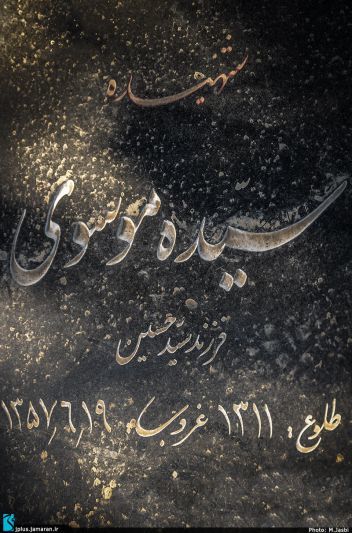 شهیده
سیده موسوی
فرزند سید حسین
طلوع: ۱۳۱۱ غروب: ۱۳۵۷/۶/۱۹
jplus.jamaran.ir
Photo: M.Jasbi